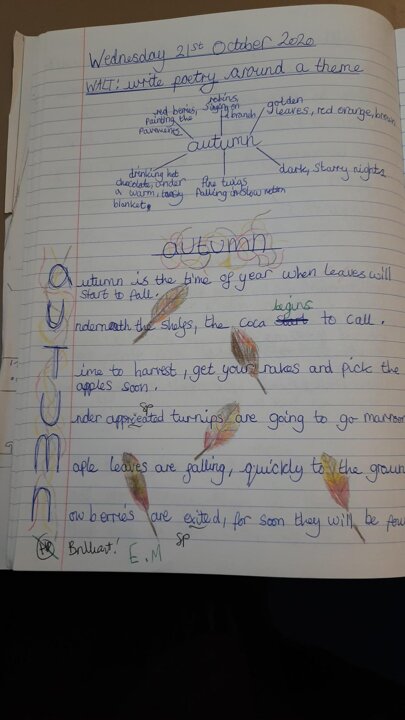 Wednesday 21st October 2020
WALT: write poetry around a theme
red berries, Painting the Pavements
robins, singing on a branch
golden leaves, red orange, brown
autumn
drinking hot chocolate, under a warm, blanket.
Pine twigs falling in slow motion
dark, starry nights
autumn
Autumn is the time of year when leaves will
start to fall.
Underneath the shelfs, the coca start begins to call.
Time to harvest, get your rakes and pick the
apples soon.
Under appriciated turnips, are going to go maroon
sp
Maple leaves are falling, quickly to the groun
Now berries are exited, for soon they will be
sp
Brilliant!
E.M